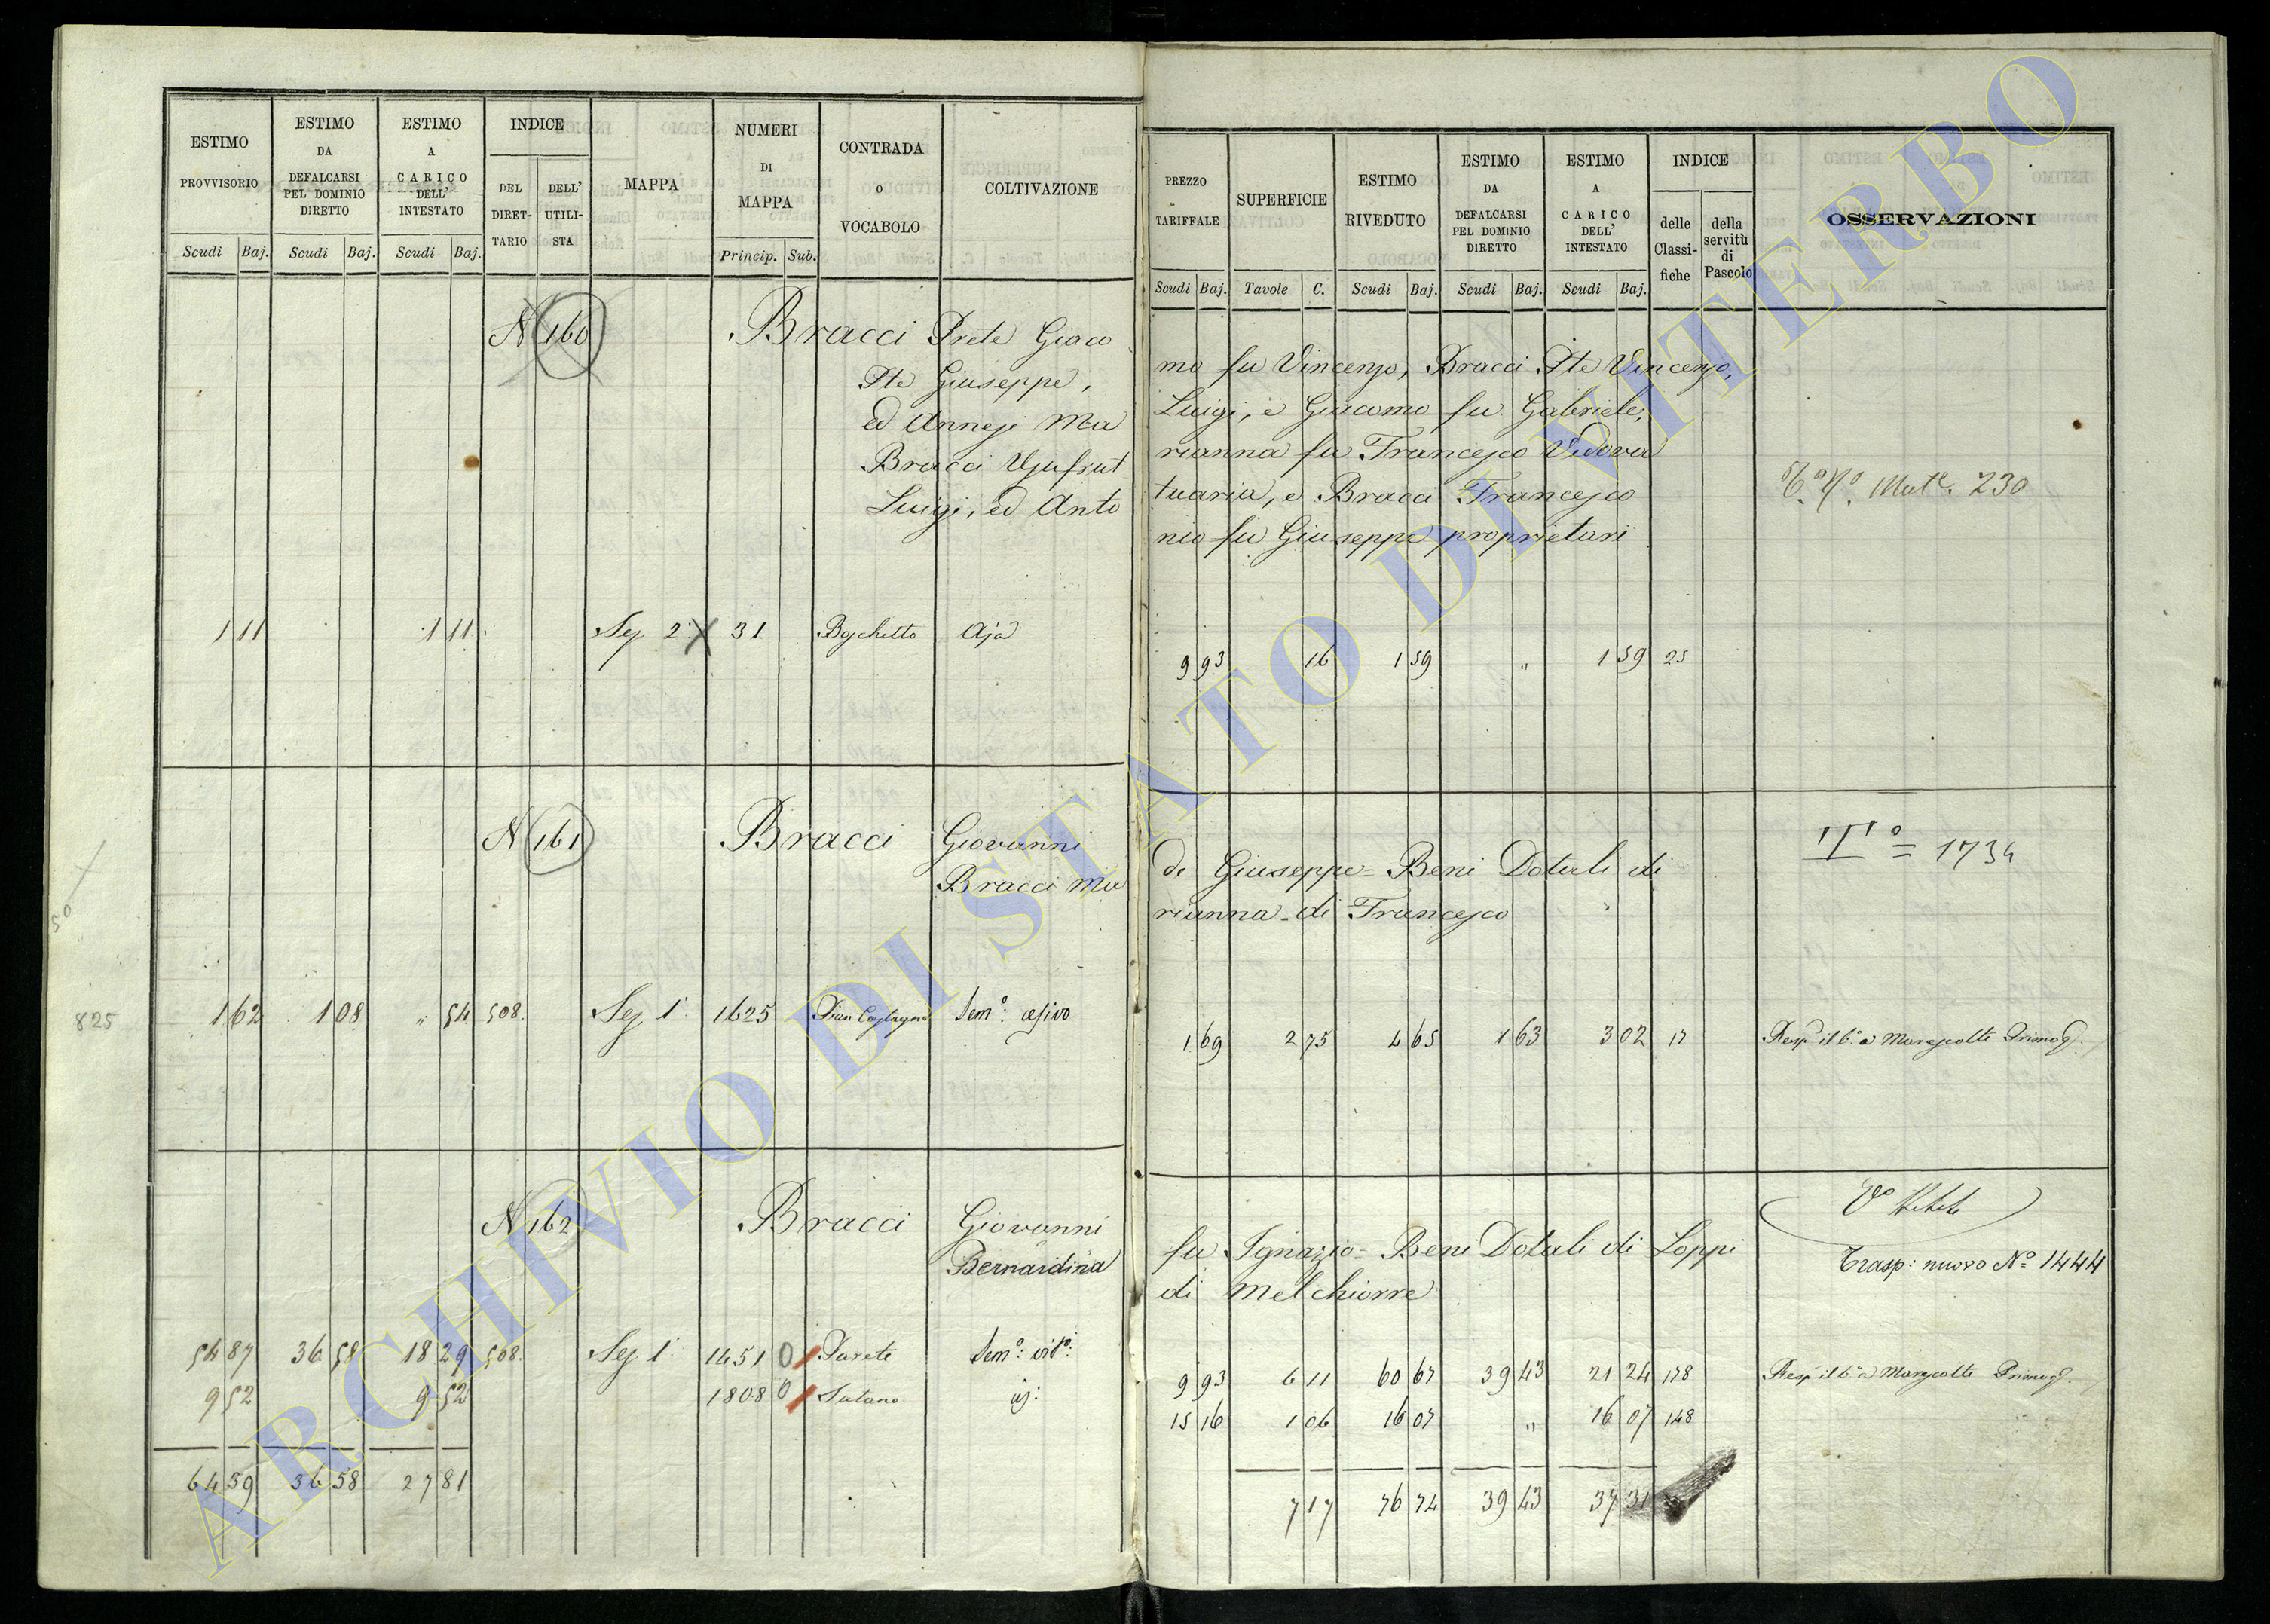 ESTIMO PROVVISORIO Scudi Baj.
ESTIMO DA DEFALCARSI PEL DOMINIO DIRETTO Scudi Baj.
ESTIMO A CARICO DELL' INTESTATO Scudi Baj.
INDICE DEL DIRETTARIO DELL' UTILISTA
MAPPA
NUMERI DI MAPPA Princip. Sub.
CONTRADA O VOCABOLO
COLTIVAZIONE
PREZZO TARIFFALE Scudi Baj.
SUPERFICIE Tavole C.
ESTIMO RIVEDUTO Scudi Baj.
ESTIMO DA DEFALCARSI PEL DOMINIO DIRETTO Scudi Baj.
ESTIMO A CARICO DELL' INTESTATO Scudi Baj.
INDICE delle Classifiche della servitù di Pascolo
OSSERVAZIONI
N 160 Bracci Prete Giaco
mo fu Vincenzo, Bracci Pte Vincenzo,
Pte Giuseppe,
Luigi, e Giacomo fu Gabriele,
ed Annesi Ma
rianna fu Francesco Vedova
Bracci Usufrut
tuaria, e Bracci Francesco
Luigi, ed Anto
nio fu Giuseppe proprietari
Mate. 230
1 11 1 11 Sez 2a 31 Boschetto Aja
9 93 16 1 59 " 1 59 25
N 161 Bracci Giovanni
di Giuseppe = Beni Dotali di
Bracci Ma
rianna di Francesco
1734
50
825
1 62 1 08 " 54 508. Sez 1a 1625 Pian Castagno Semo: olivo
1 69 2 75 4 65 1 63 3 02 17 Resp il 6o a Marescotti Primog.
N 162 Bracci Giovanni
fu Ignazio = Beni Dotali di Loppi
Bernardina
di Melchiorre
Trasp: nuovo No 1444
54 87 36 58 18 29 508. Sez 1a 1451 0 Parete Semo: vito:
9 93 6 11 60 67 39 43 21 24 178 Resp il 6o a Marescotti Primog.
9 52 9 52 1808 0 Sutano id:
15 16 1 06 16 07 " 16 07 148
64 39 36 58 27 81
7 17 76 74 39 43 37 31
ARCHIVIO DI STATO DI VITERBO